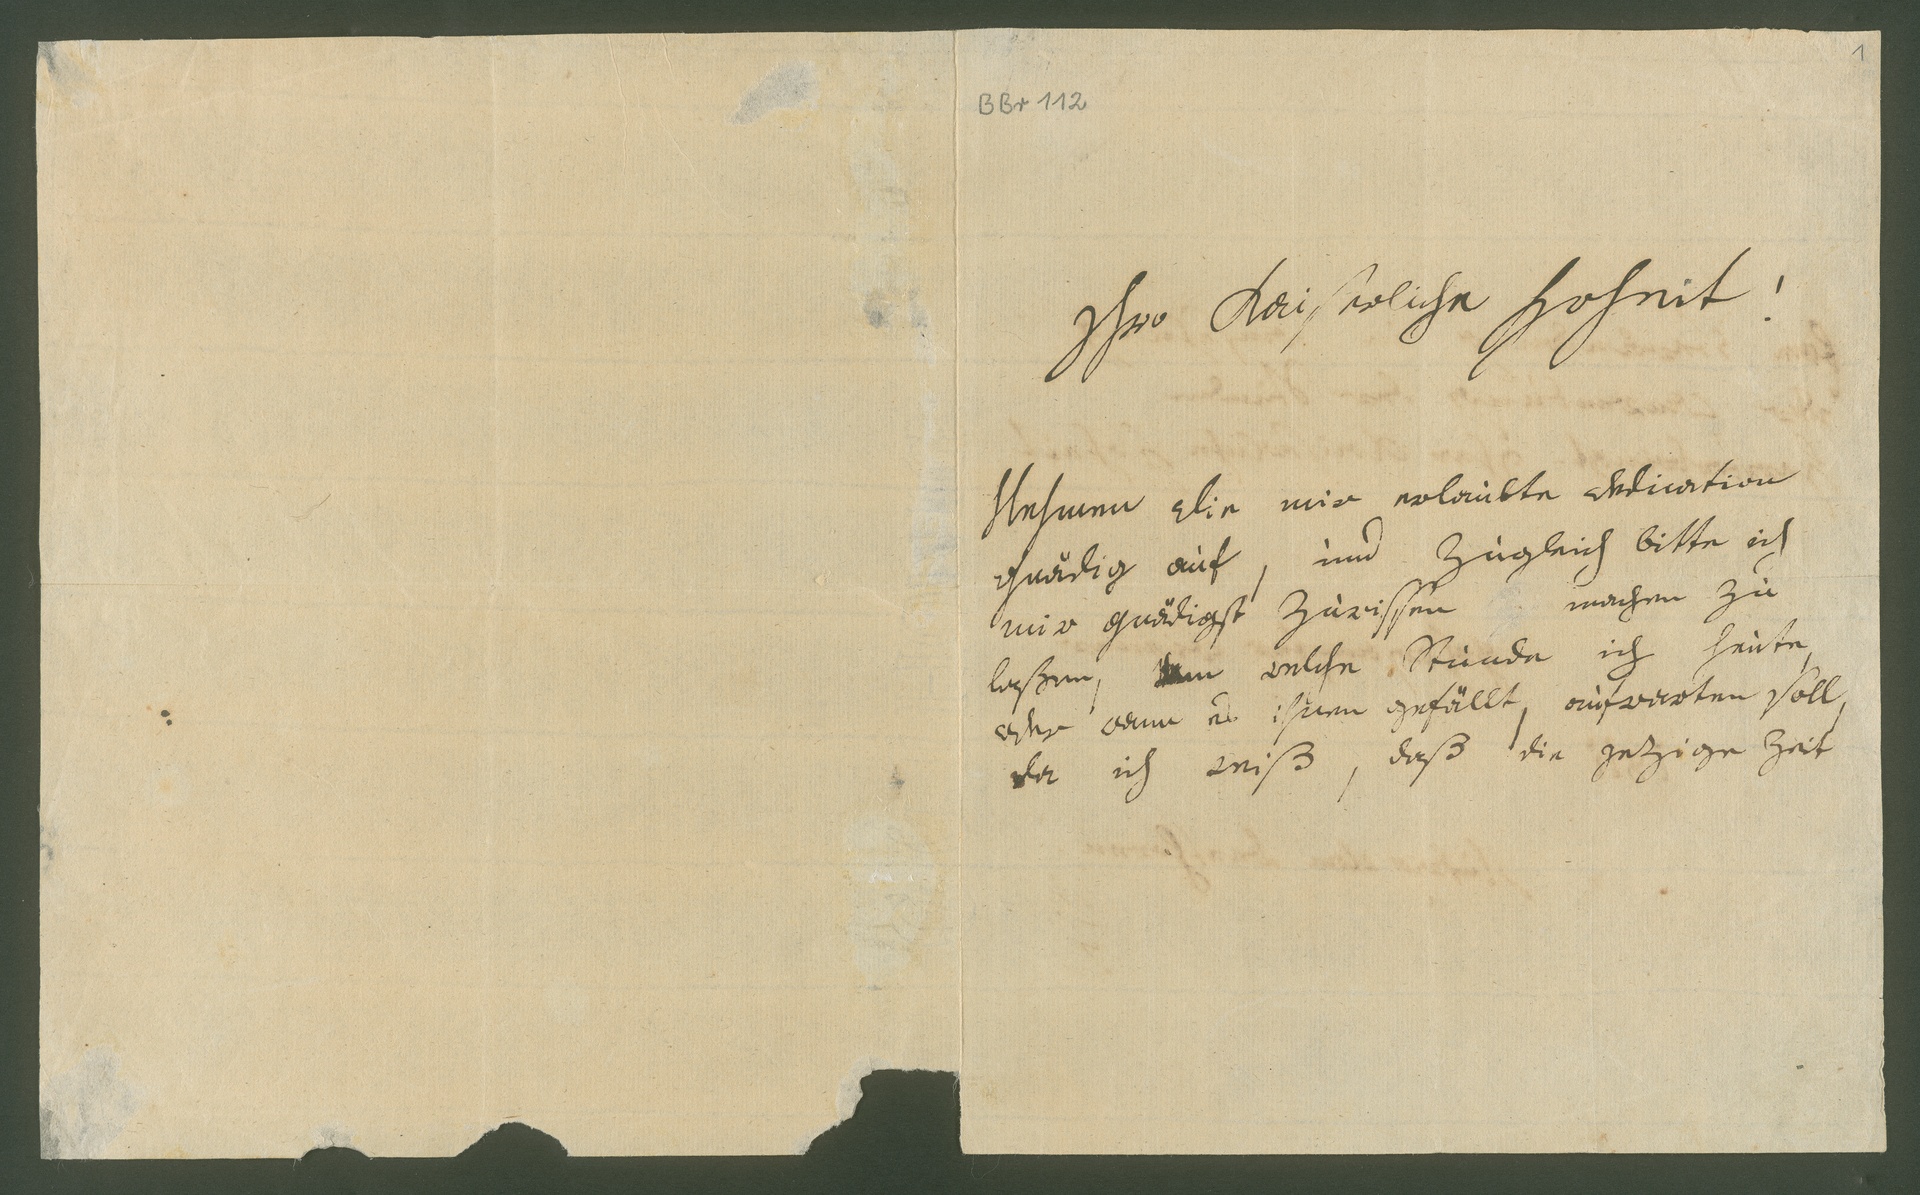 1
BBr 112
Ihro Kaiserliche Hoheit!
Nehmen sie mir erlaubte dedication
gnädig auf, und zugleich bitte ich
mir gnädigst zuwissen machen zu
laßen, um welche Stunde ich heute,
oder wann es ihnen gefällt, aufwarten soll,
da ich weiß, daß die jetzige Zeit